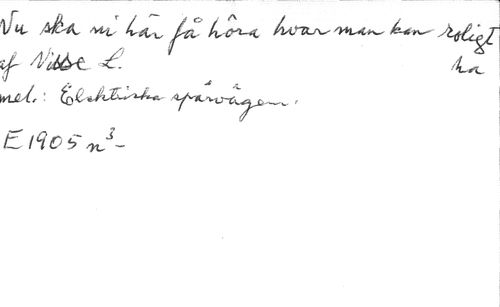 Nu ska ni här få höra hvar man kan roligt
ha
af Nisse L.
mel.: Elektriska spårvägen.
E 1905 n³-